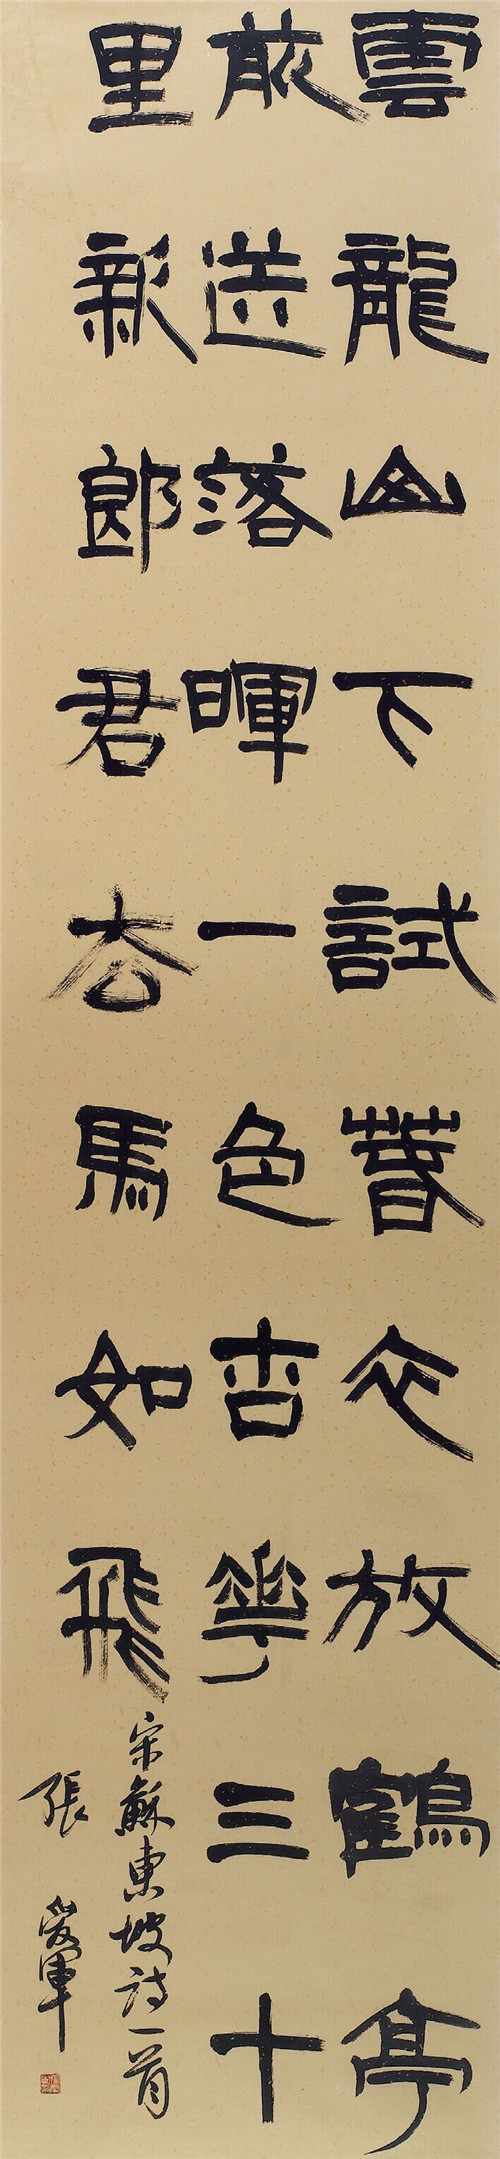 雲龍山下試春衣放鶴亭
前送落暉一色杏花三十
里新郎君去馬如飛
宋蘇東坡詩一首
張愛軍